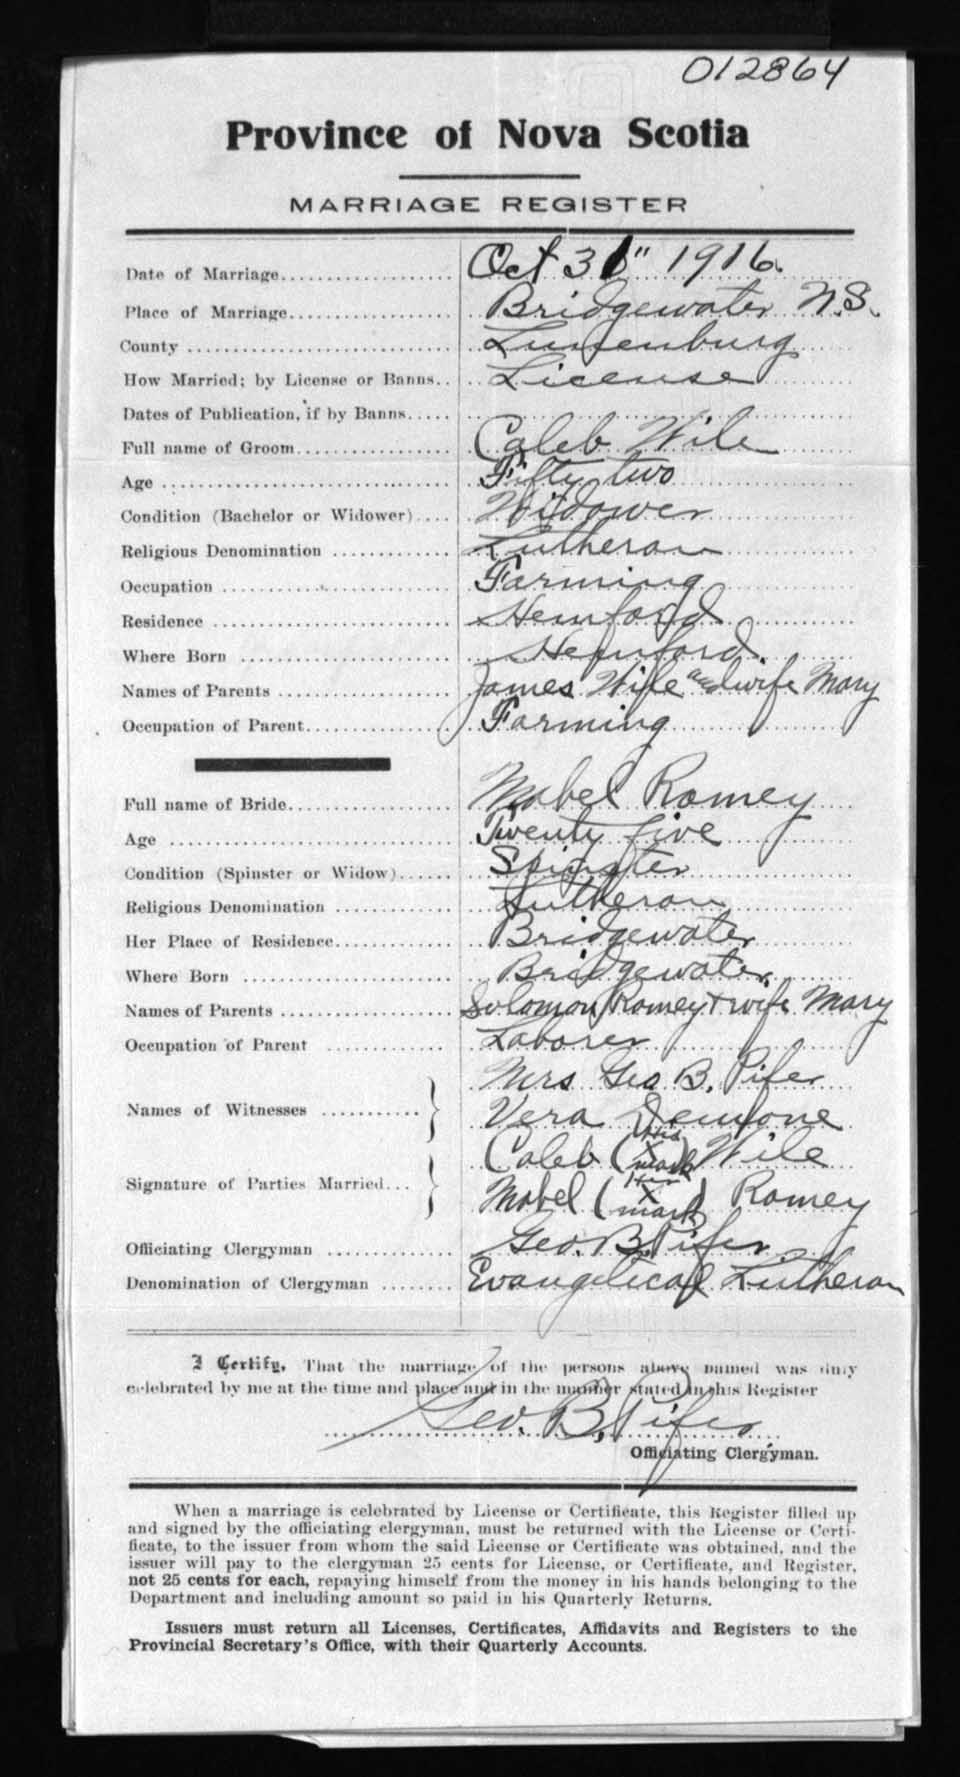 012864
Province of Nova Scotia
MARRIAGE REGISTER
Date of Marriage Oct 31" 1916.
Place of Marriage Bridgewater N.S.
County Lunenburg
How Married; by License or Banns License
Dates of Publication, if by Banns
Full name of Groom Caleb Wile
Age Fifty two
Condition (Bachelor or Widower) Widower
Religious Denomination Lutheran
Occupation Farming
Residence Hemford
Where Born Hemford.
Names of Parents James Wile and wife Mary
Occupation of Parent Farming
Full name of Bride Mabel Romey
Age Twenty five
Condition (Spinster or Widow) Spinster
Religious Denomination Lutheran
Her Place of Residence Bridgewater
Where Born Bridgewater.
Names of Parents Solomon Romey + wife Mary
Occupation of Parent Laborer
Mrs Geo B. Pifer
Names of Witnesses
Vera Demone
Caleb (His X mark) Wile
Signature of Parties Married
Mabel (Her X mark) Romey
Officiating Clergyman Geo. B. Pifer.
Denomination of Clergyman Evangelical Lutheran
I Certify, That the marriage of the persons above named was duly
celebrated by me at the time and place and in the manner stated in this Register
Geo. B. Pifer
Officiating Clergyman.
When a marriage is celebrated by License or Certificate, this Register filled up
and signed by the officiating clergyman, must be returned with the License or Certi-
ficate, to the issuer from whom the said License or Certificate was obtained, and the
issuer will pay to the clergyman 25 cents for License, or Certificate, and Register,
not 25 cents for each, repaying himself from the money in his hands belonging to the
Department and including amount so paid in his Quarterly Returns.
Issuers must return all Licenses, Certificates, Affidavits and Registers to the
Provincial Secretary's Office, with their Quarterly Accounts.